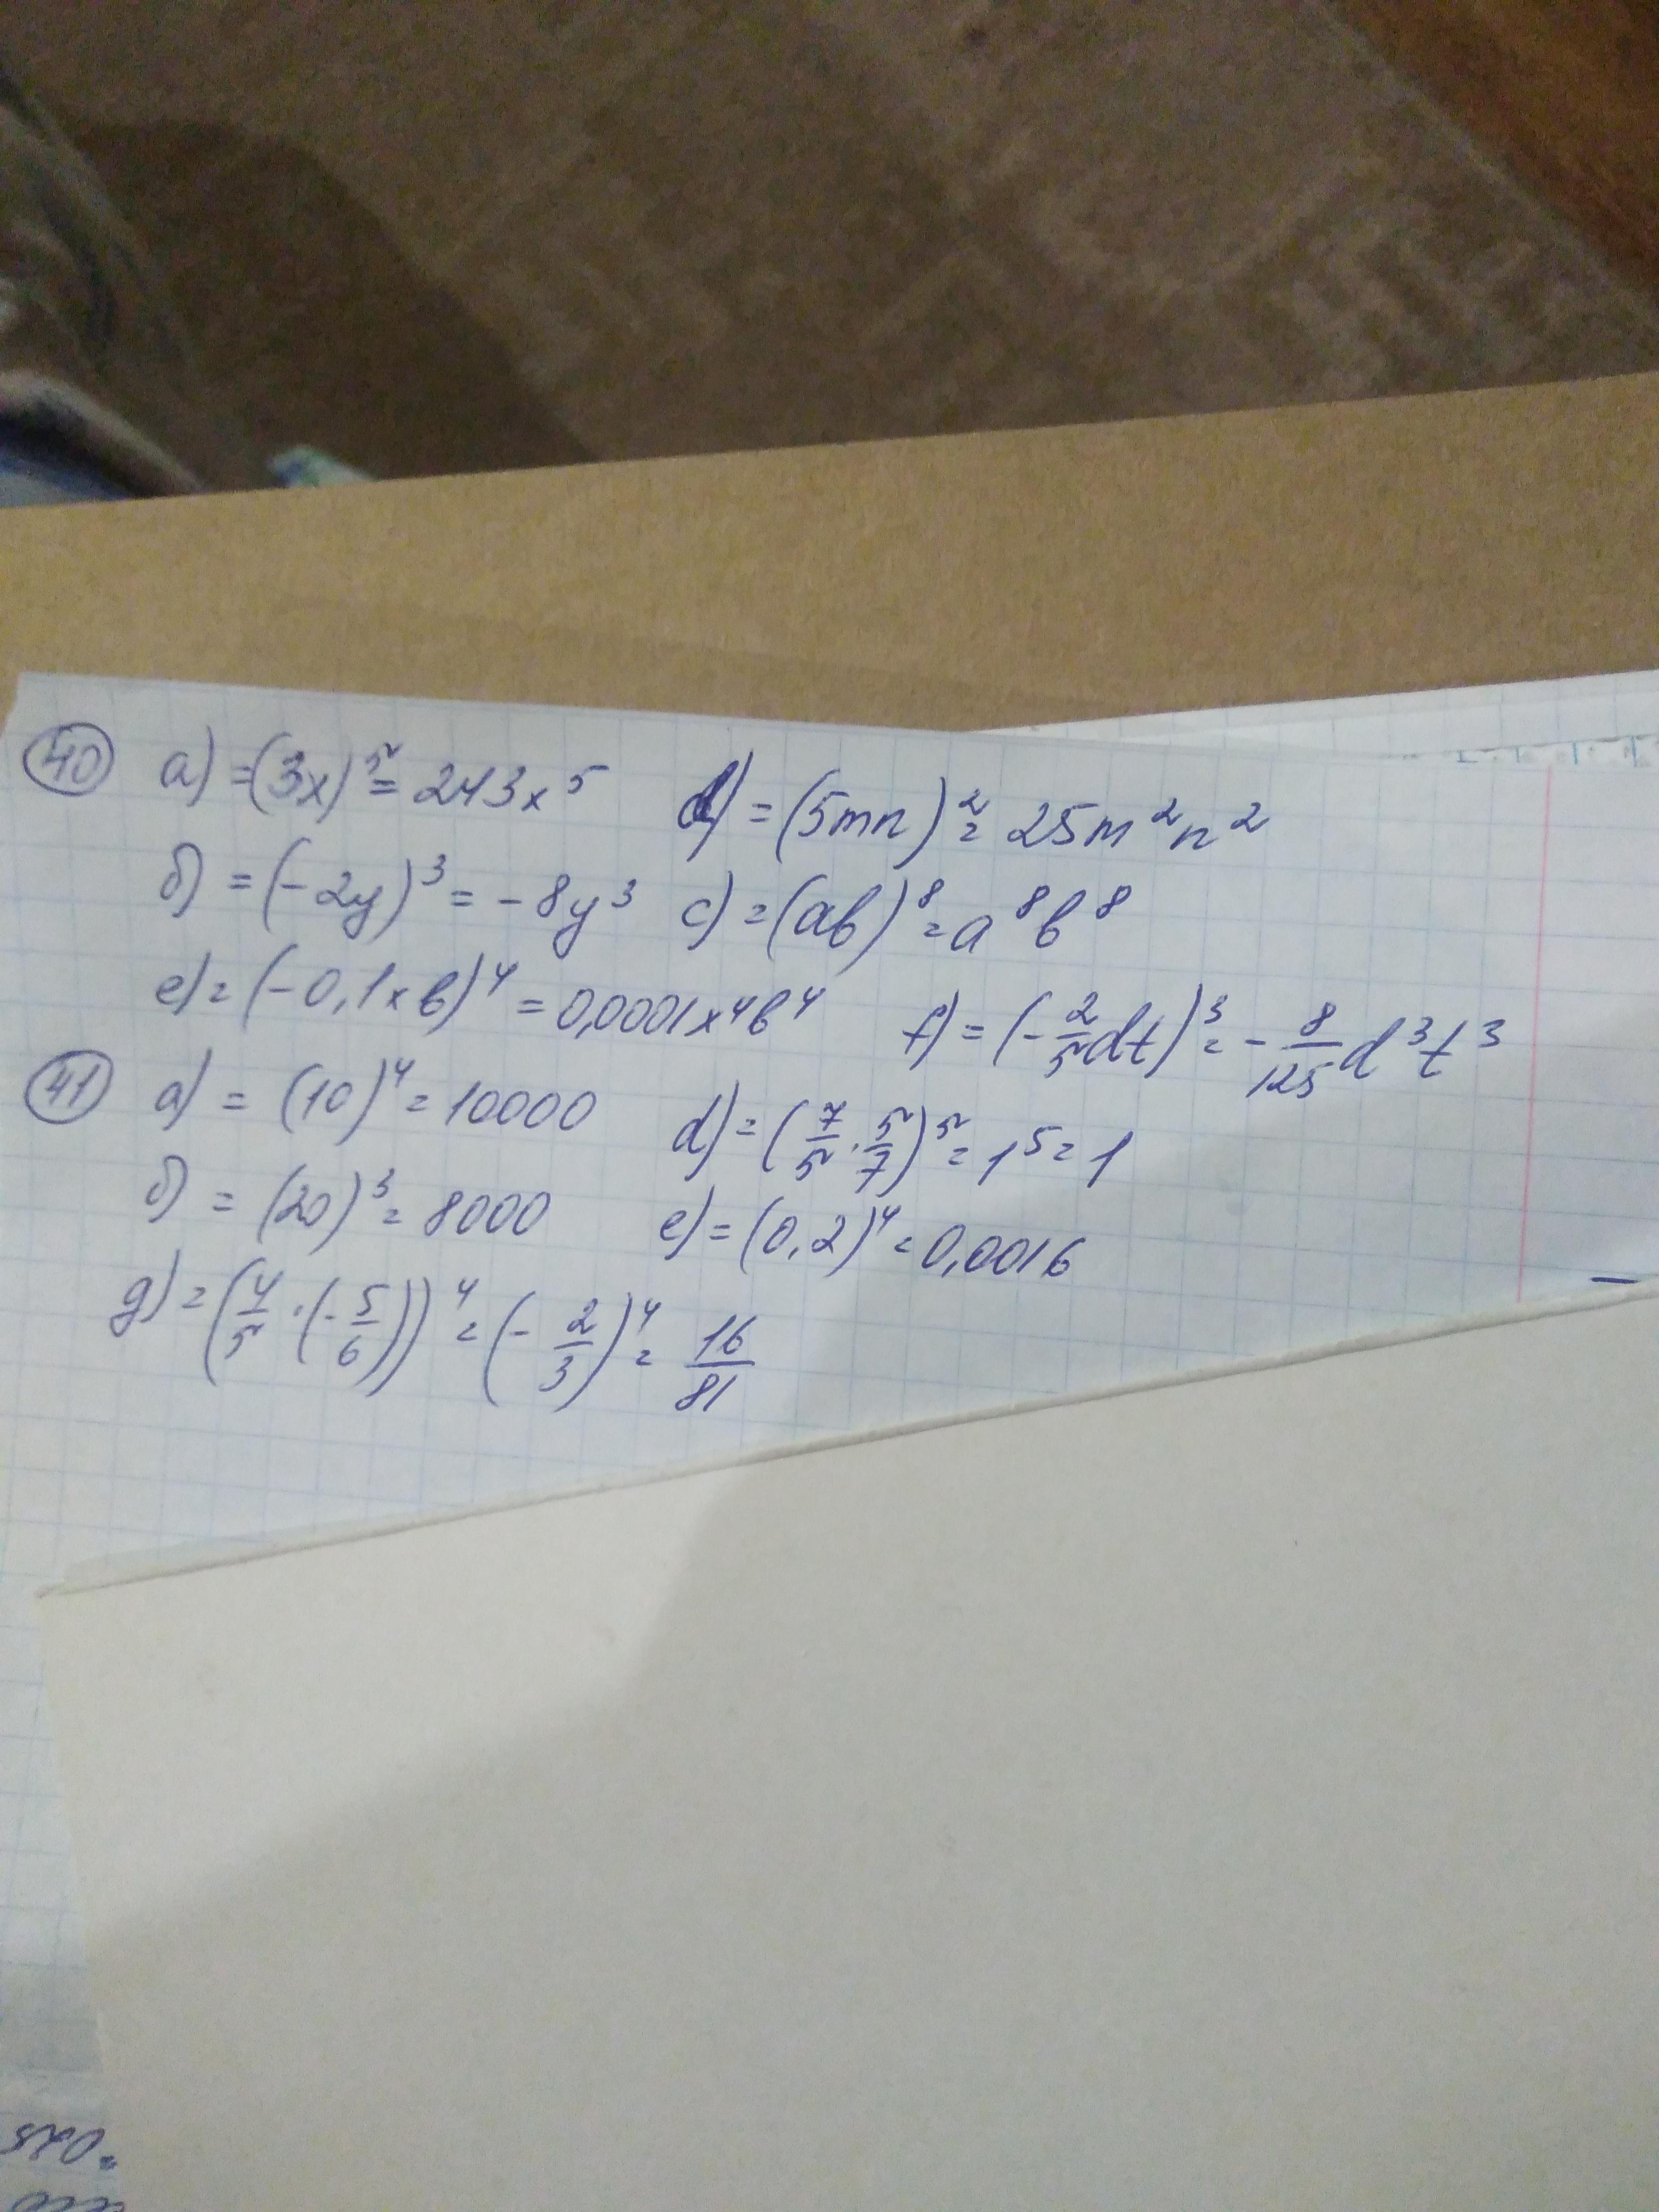 40 а) = (3x)⁵ = 243x⁵ d) = (5mn)² = 25m²n²
б) = (-2y)³ = -8y³ c) = (ab)⁸ = a⁸b⁸
e) = (-0,1xb)⁴ = 0,0001x⁴b⁴ f) = (-2/5dt)³ = -8/125d³t³
41 а) = (10)⁴ = 10000 d) = (7/5 · 5/7)⁵ = 1⁵ = 1
б) = (20)³ = 8000 e) = (0,2)⁴ = 0,0016
g) = (4/5 · (-5/6))⁴ = (-2/3)⁴ = 16/81